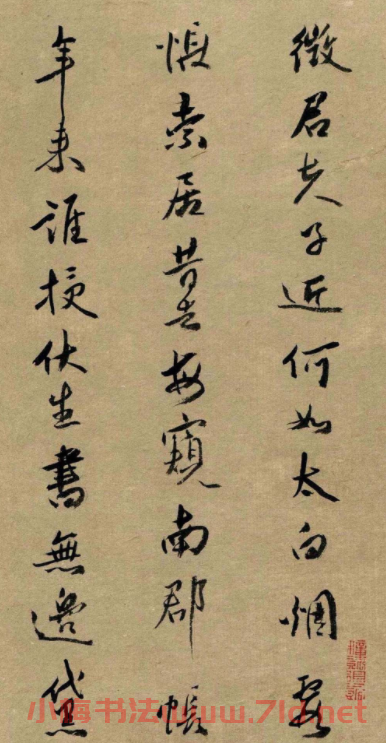 徵君夫子近何如太白烟霞
恨索居昔去每窺南郡帳
年来誰授伏生書無邊黛
小梅书法www.7ld.net